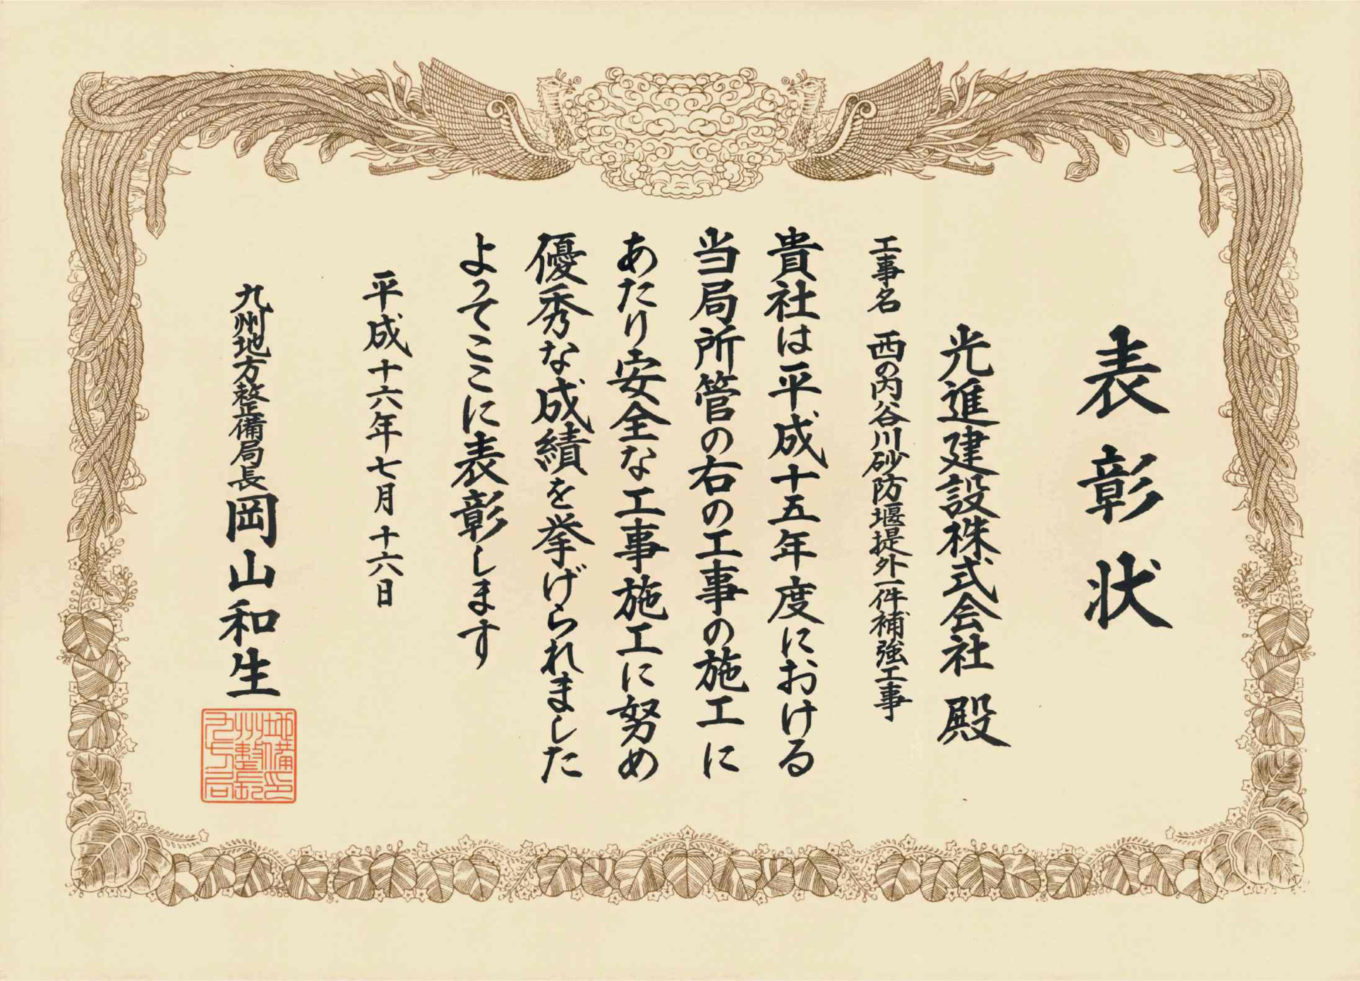 表彰状
光進建設株式会社 殿
工事名 西の内谷川砂防堰堤外一件補強工事
貴社は平成十五年度における
当局所管の右の工事の施工に
あたり安全な工事施工に努め
優秀な成績を挙げられました
よってここに表彰します
平成十六年七月十六日
九州地方整備局長 岡山和生